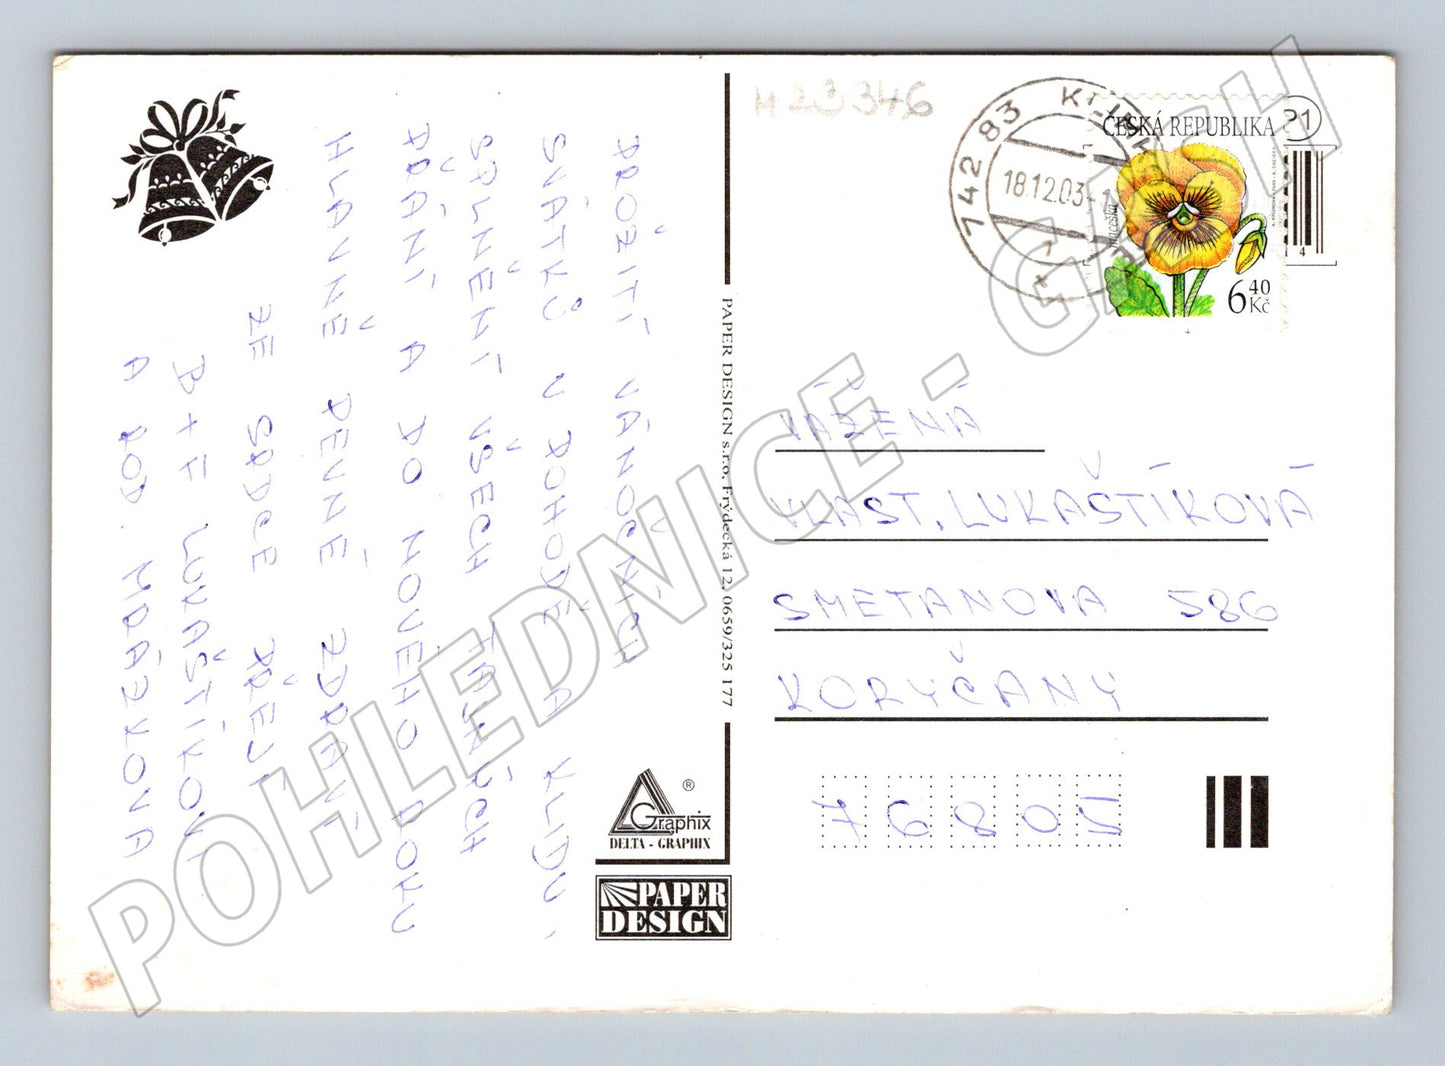 PROŽITÍ VÁNOČNÍCH
SVÁTKŮ V POHODĚ A KLIDU,
SPLNĚNÍ VŠECH TAJNÝCH
PŘÁNÍ A DO NOVÉHO ROKU
HLAVNĚ PEVNÉ ZDRAVÍ
ZE SRDCE PŘEJÍ
B+F LUKAŠTÍKOVI
A ROD. MRÁZKOVA
H23346
142 83
18.12.03-1
1
*
ČESKÁ REPUBLIKA
P1
maceška
6 40 Kč
4
PAPER DESIGN s.r.o. Frýdecká 12, 0659/325 177
VÁŽENÁ
VLAST. LUKAŠTÍKOVÁ
SMETANOVA 586
KORYČANY
76805
®
Graphix
DELTA - GRAPHIX
PAPER
DESIGN
POHLEDNICE - GMCH